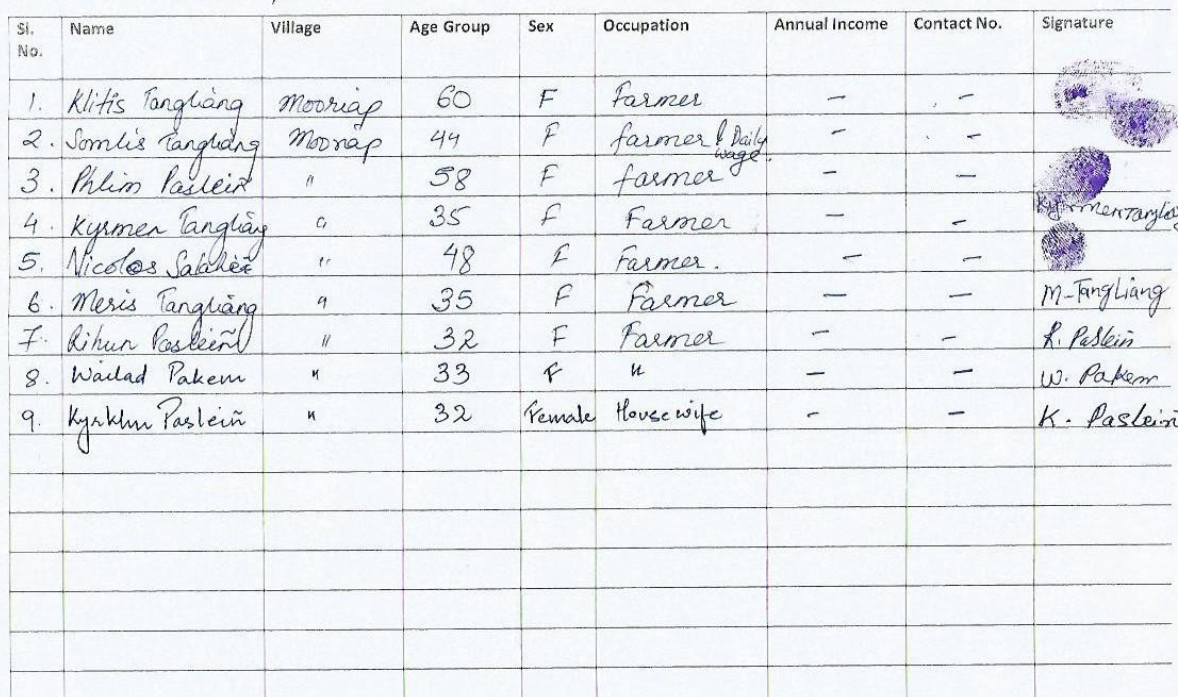 Sl. No. Name Village Age Group Sex Occupation Annual Income Contact No. Signature
1. Klitis Tangliang Mooriap 60 F Farmer – –
2. Somlis Tangliang Mooriap 44 F farmer & Daily wage. – –
3. Phlim Paslein " 58 F farmer – –
4. Kyrmen Tangliang " 35 F Farmer – – Kyrmen Tangliang
5. Nicolas " 48 F Farmer. – –
6. Meris Tangliang " 35 F Farmer – – M-Tangliang
7. Rihun Pasleiñ " 32 F Farmer – – R. Paslein
8. Wailad Pakem " 33 F " – – W. Pakem
9. Pasleiñ " 32 Female Housewife - – K. Pasleiñ